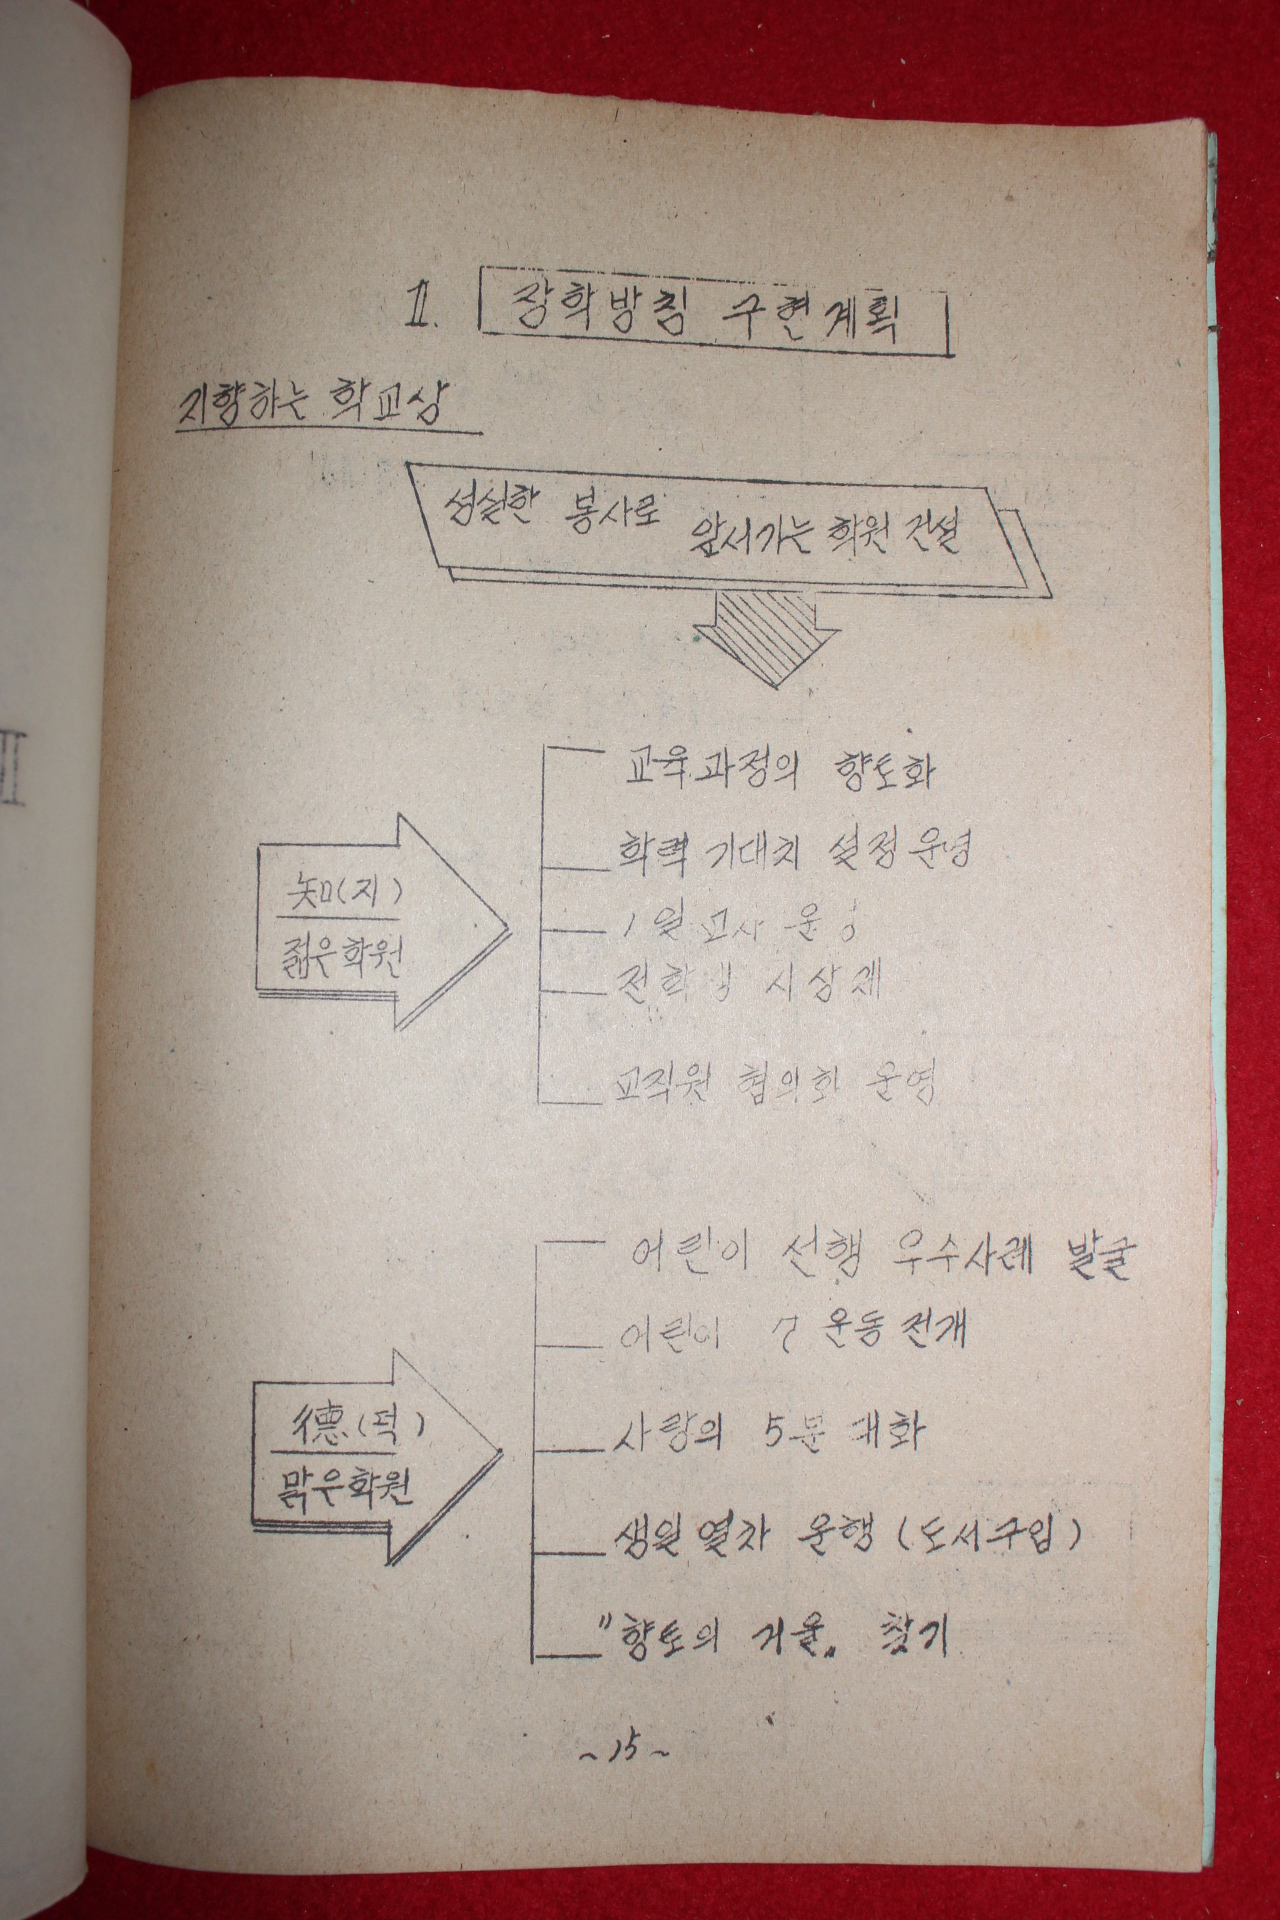 Ⅱ. 장학방침 구현계획
지향하는 학교상
성실한 봉사로 앞서가는 학원 건설
교육과정의 향토화
학력 기대치 설정 운영
知(지)
젊은학원
1일 교사 운영
전학생 시상제
교직원 협의회 운영
어린이 선행 우수사례 발굴
어린이 7 운동 전개
德(덕)
맑은학원
사랑의 5분 대화
생일 열차 운행 (도서구입)
"향토의 거울" 찾기
~15~
Ⅱ